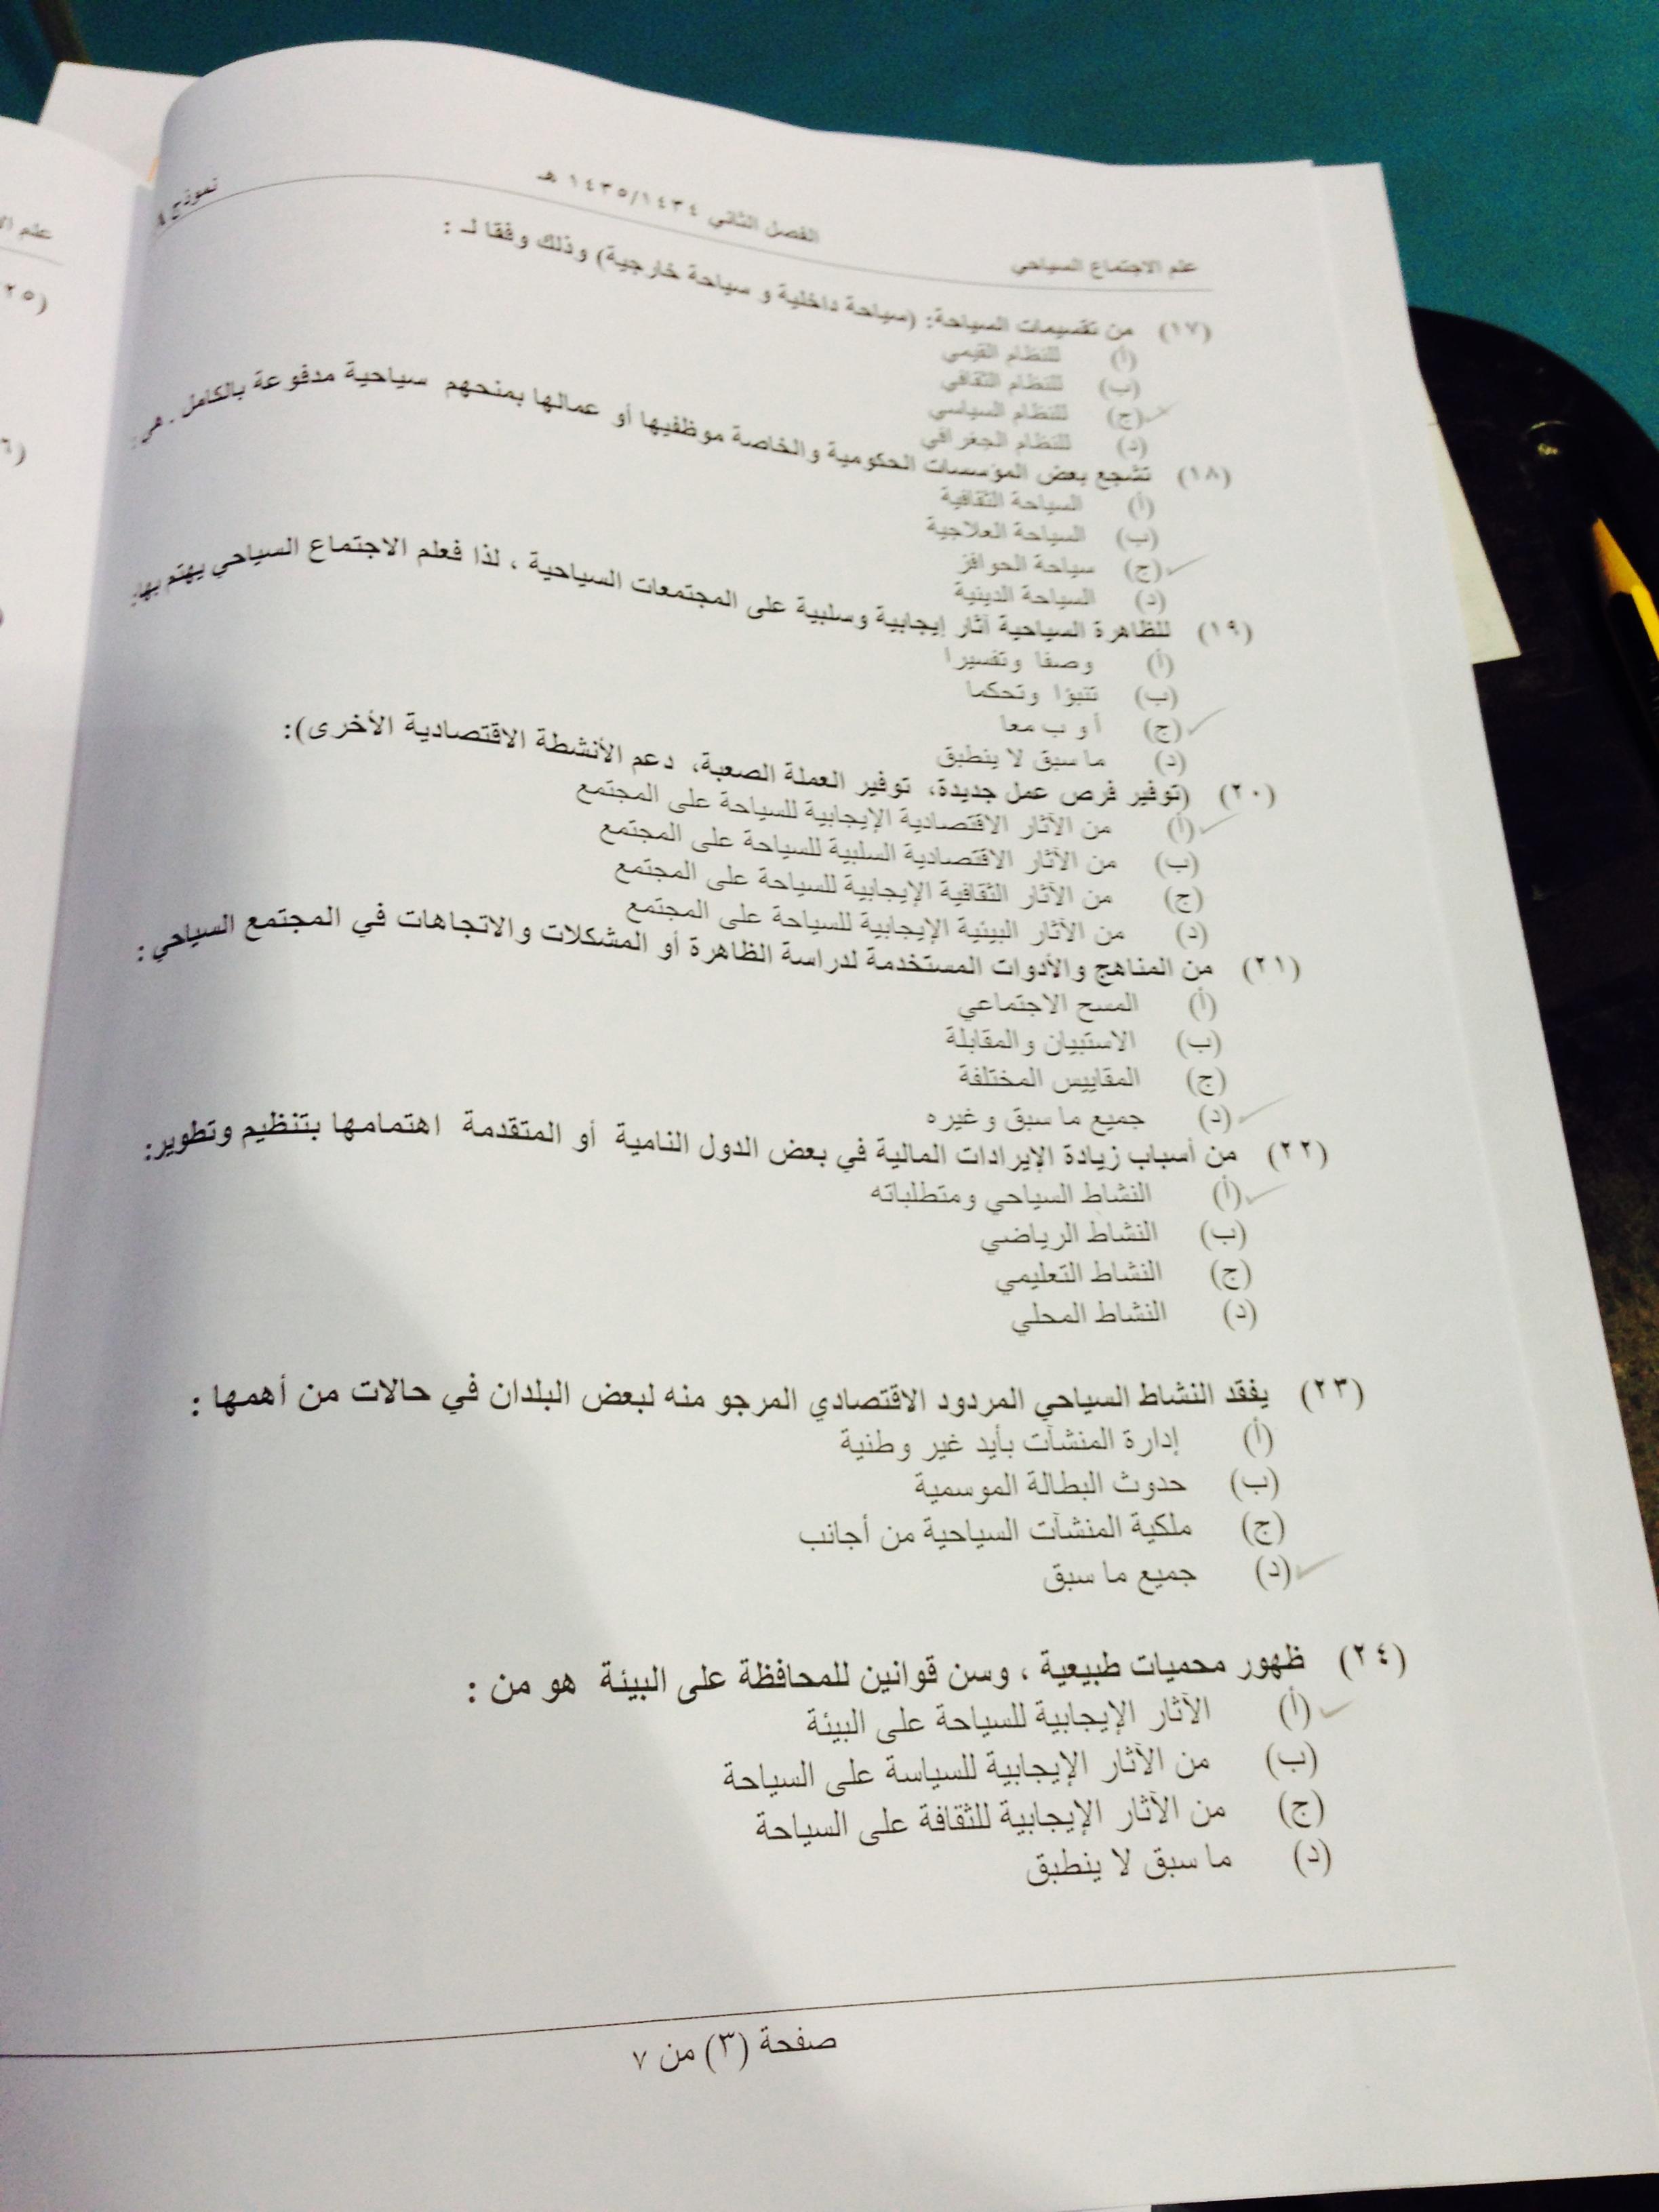 علم الاجتماع السياحي
الفصل الثاني ١٤٣٥/١٤٣٤ هـ
نموذج A
(١٧) من تقسيمات السياحة: (سياحة داخلية و سياحة خارجية) وذلك وفقا لـ :
(أ) للنظام القيمي
(ب) للنظام الثقافي
(ج) للنظام السياسي
(د) للنظام الجغرافي
(١٨) تشجع بعض المؤسسات الحكومية والخاصة موظفيها أو عمالها بمنحهم سياحية مدفوعة بالكامل . هي :
(أ) السياحة الثقافية
(ب) السياحة العلاجية
(ج) سياحة الحوافز
(د) السياحة الدينية
(١٩) للظاهرة السياحية آثار إيجابية وسلبية على المجتمعات السياحية ، لذا فعلم الاجتماع السياحي يهتم بها:
(أ) وصفا وتفسيرا
(ب) تنبؤا وتحكما
(ج) أ و ب معا
(د) ما سبق لا ينطبق
(٢٠) (توفير فرص عمل جديدة، توفير العملة الصعبة، دعم الأنشطة الاقتصادية الأخرى):
(أ) من الآثار الاقتصادية الإيجابية للسياحة على المجتمع
(ب) من الآثار الاقتصادية السلبية للسياحة على المجتمع
(ج) من الآثار الثقافية الإيجابية للسياحة على المجتمع
(د) من الآثار البيئية الإيجابية للسياحة على المجتمع
(٢١) من المناهج والأدوات المستخدمة لدراسة الظاهرة أو المشكلات والاتجاهات في المجتمع السياحي :
(أ) المسح الاجتماعي
(ب) الاستبيان والمقابلة
(ج) المقاييس المختلفة
(د) جميع ما سبق وغيره
(٢٢) من أسباب زيادة الإيرادات المالية في بعض الدول النامية أو المتقدمة اهتمامها بتنظيم وتطوير:
(أ) النشاط السياحي ومتطلباته
(ب) النشاط الرياضي
(ج) النشاط التعليمي
(د) النشاط المحلي
(٢٣) يفقد النشاط السياحي المردود الاقتصادي المرجو منه لبعض البلدان في حالات من أهمها :
(أ) إدارة المنشآت بأيد غير وطنية
(ب) حدوث البطالة الموسمية
(ج) ملكية المنشآت السياحية من أجانب
(د) جميع ما سبق
(٢٤) ظهور محميات طبيعية ، وسن قوانين للمحافظة على البيئة هو من :
(أ) الآثار الإيجابية للسياحة على البيئة
(ب) من الآثار الإيجابية للسياسة على السياحة
(ج) من الآثار الإيجابية للثقافة على السياحة
(د) ما سبق لا ينطبق
صفحة (٣) من ٧